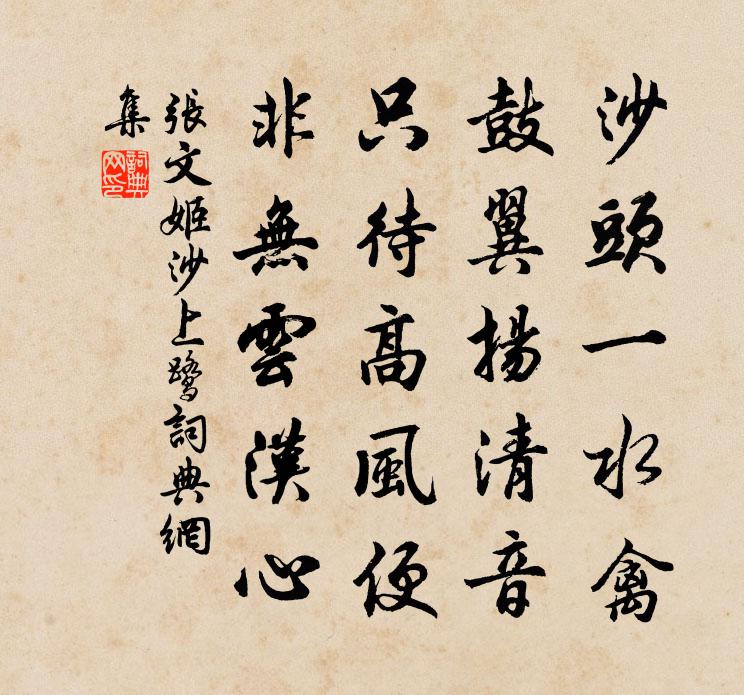 沙頭一水禽
鼓翼揚清音
只待高風便
非無雲漢心
張文姬沙上鷺詞典網
集
詞典
网印